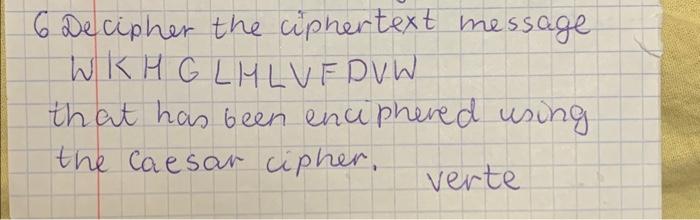 6 Decipher the ciphertext message
WKHGLHLVFDVW
that has been enciphered using
the Caesar cipher.
verte